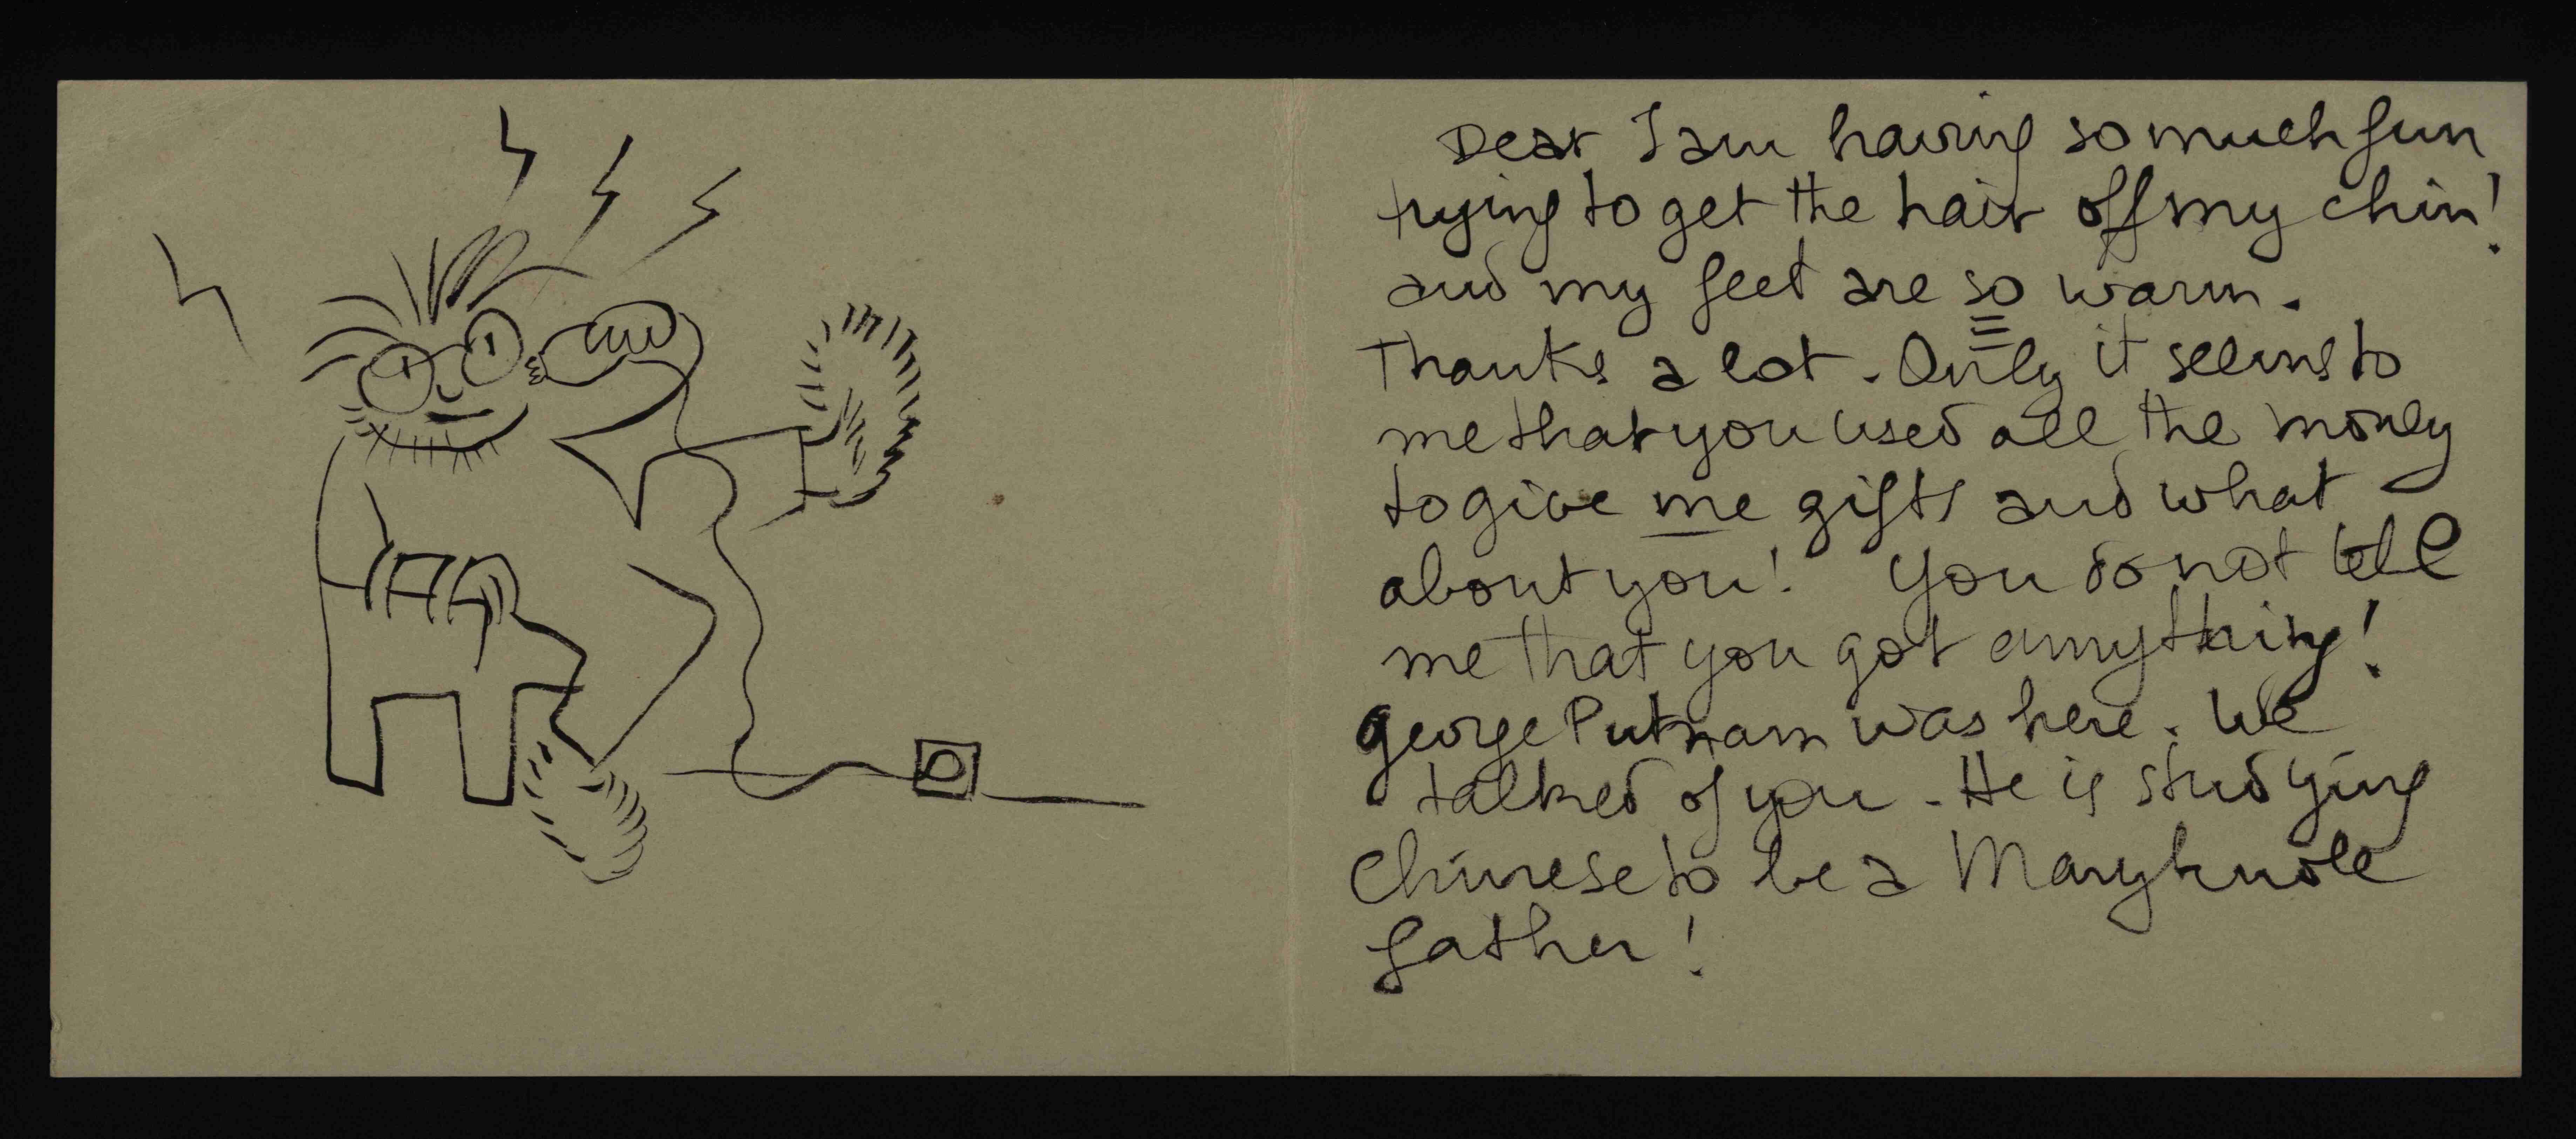 Dear I am having so much fun
trying to get the hair off my chin!
and my feet are so warm.
Thanks a lot. Only it seems to
me that you used all the money
to give me gifts and what
about you! You do not tell
me that you got annything!
George Putnam was here. We
talked of you - He is studying
Chinese to be a Maryknole
father!